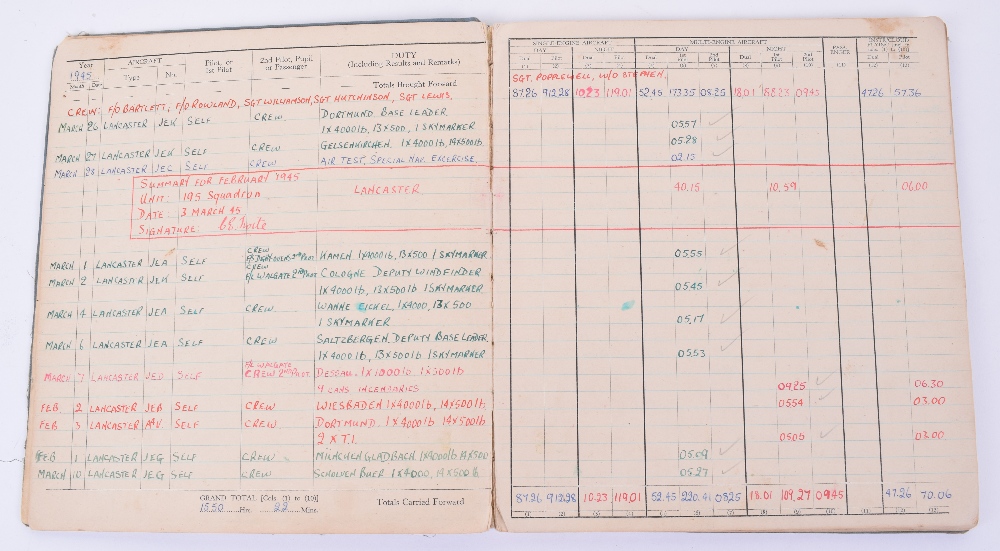 Year AIRCRAFT Pilot, or 1st Pilot 2nd Pilot, Pupil or Passenger DUTY (Including Results and Remarks)
1945 Type No.
Month Date Totals Brought Forward
CREW: F/O BARTLETT, F/O ROWLAND, SGT. WILLIAMSON, SGT. HUTCHINSON, SGT LEWIS.
MARCH 26 LANCASTER JEK SELF CREW DORTMUND. BASE LEADER
1 X 4000 lb, 13 X 500, 1 SKYMARKER
MARCH 27 LANCASTER JEK SELF CREW GELSENKIRCHEN. 1 X 4000 lb, 14 X 500 lb.
MARCH 28 LANCASTER JEC SELF CREW AIR TEST, SPECIAL NAV. EXCERCISE.
SUMMARY FOR FEBRUARY 1945 LANCASTER
UNIT: 195 Squadron
DATE: 3 MARCH 45
SIGNATURE:
MARCH 1 LANCASTER JEA SELF CREW 2nd PILOT KAMEN 1 X 4000 lb, 13 X 500 1 SKYMARKER
MARCH 2 LANCASTER JEK SELF CREW F/L WALGATE 2nd PILOT COLOGNE DEPUTY WINDFINDER
1 X 4000 lb, 13 X 500 lb 1 SKYMARKER
MARCH 4 LANCASTER JEA SELF CREW WANNE EICKEL, 1 X 4000, 13 X 500
1 SKYMARKER
MARCH 6 LANCASTER JEA SELF CREW SALTZBERGEN. DEPUTY BASE LEADER
1 X 4000 lb, 13 X 500 lb 1 SKYMARKER
MARCH 7 LANCASTER SELF F/L WALGATE CREW 2nd PILOT DESSAU. 1 X 500 lb
9 CANS INCENDARIES
FEB. 2 LANCASTER JEB SELF CREW WIESBADEN 1 X 4000 lb, 14 X 500 lb.
FEB. 3 LANCASTER SELF CREW DORTMUND. 1 X 4000 lb, 14 X 500 lb
2 X T.I.
FEB 1 LANCASTER JEG SELF CREW MUNCHEN GLADBACH 1 X 4000 lb 14 X 500
MARCH 10 LANCASTER JEG SELF CREW SCHOLVEN BUER 1 X 4000, 14 X 500 lb
GRAND TOTAL [Cols. (1) to (10)] Totals Carried Forward
1550 Hrs. 22 Mins.
SINGLE-ENGINE AIRCRAFT MULTI-ENGINE AIRCRAFT PASS-ENGER
DAY NIGHT DAY NIGHT
Dual Pilot Dual Pilot Dual 1st Pilot 2nd Pilot Dual 1st Pilot 2nd Pilot
(1) (2) (3) (4) (5) (6) (7) (8) (9) (10) (11) (12) (13)
SGT. POPPLEWELL, W/O STEPHEN.
87.26 912.28 10.23 119.01 52.45 173.35 08.25 18.01 88.23 09.45 47.26 57.36
05.57
05.28
02.15
40.15 10.59 06.00
05.55
05.45
05.17
05.53
09.25 06.30
05.54 03.00
05.05 03.00
05.09
05.27
87.26 912.28 10.23 119.01 52.45 220.41 08.25 18.01 109.27 09.45 47.26 70.06
(1) (2) (3) (4) (5) (6) (7) (8) (9) (10) (11) (12) (13)